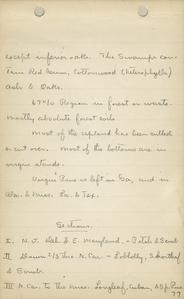 except inferior oaks. The Swamps con-
tain Red Gum, Cottonwood (heterophylla)
Ash & Oaks.
67% Region in forest or waste.
Mostly absolute forest soils
Most of the upland has been culled
or cut over. Most of the bottoms are in
virgin stands.
Virgin Pine is left in Ga, and in
Ala. & Miss. La & Tex.
Sections.
I. N.J. Del. & E. Maryland. - Pitch & Scrub
II Down to N. Car. - Loblolly, Shortleaf
& Scrub.
III N. Car. to the Miss. Longleaf, Cuban, & Sp. Pine
77